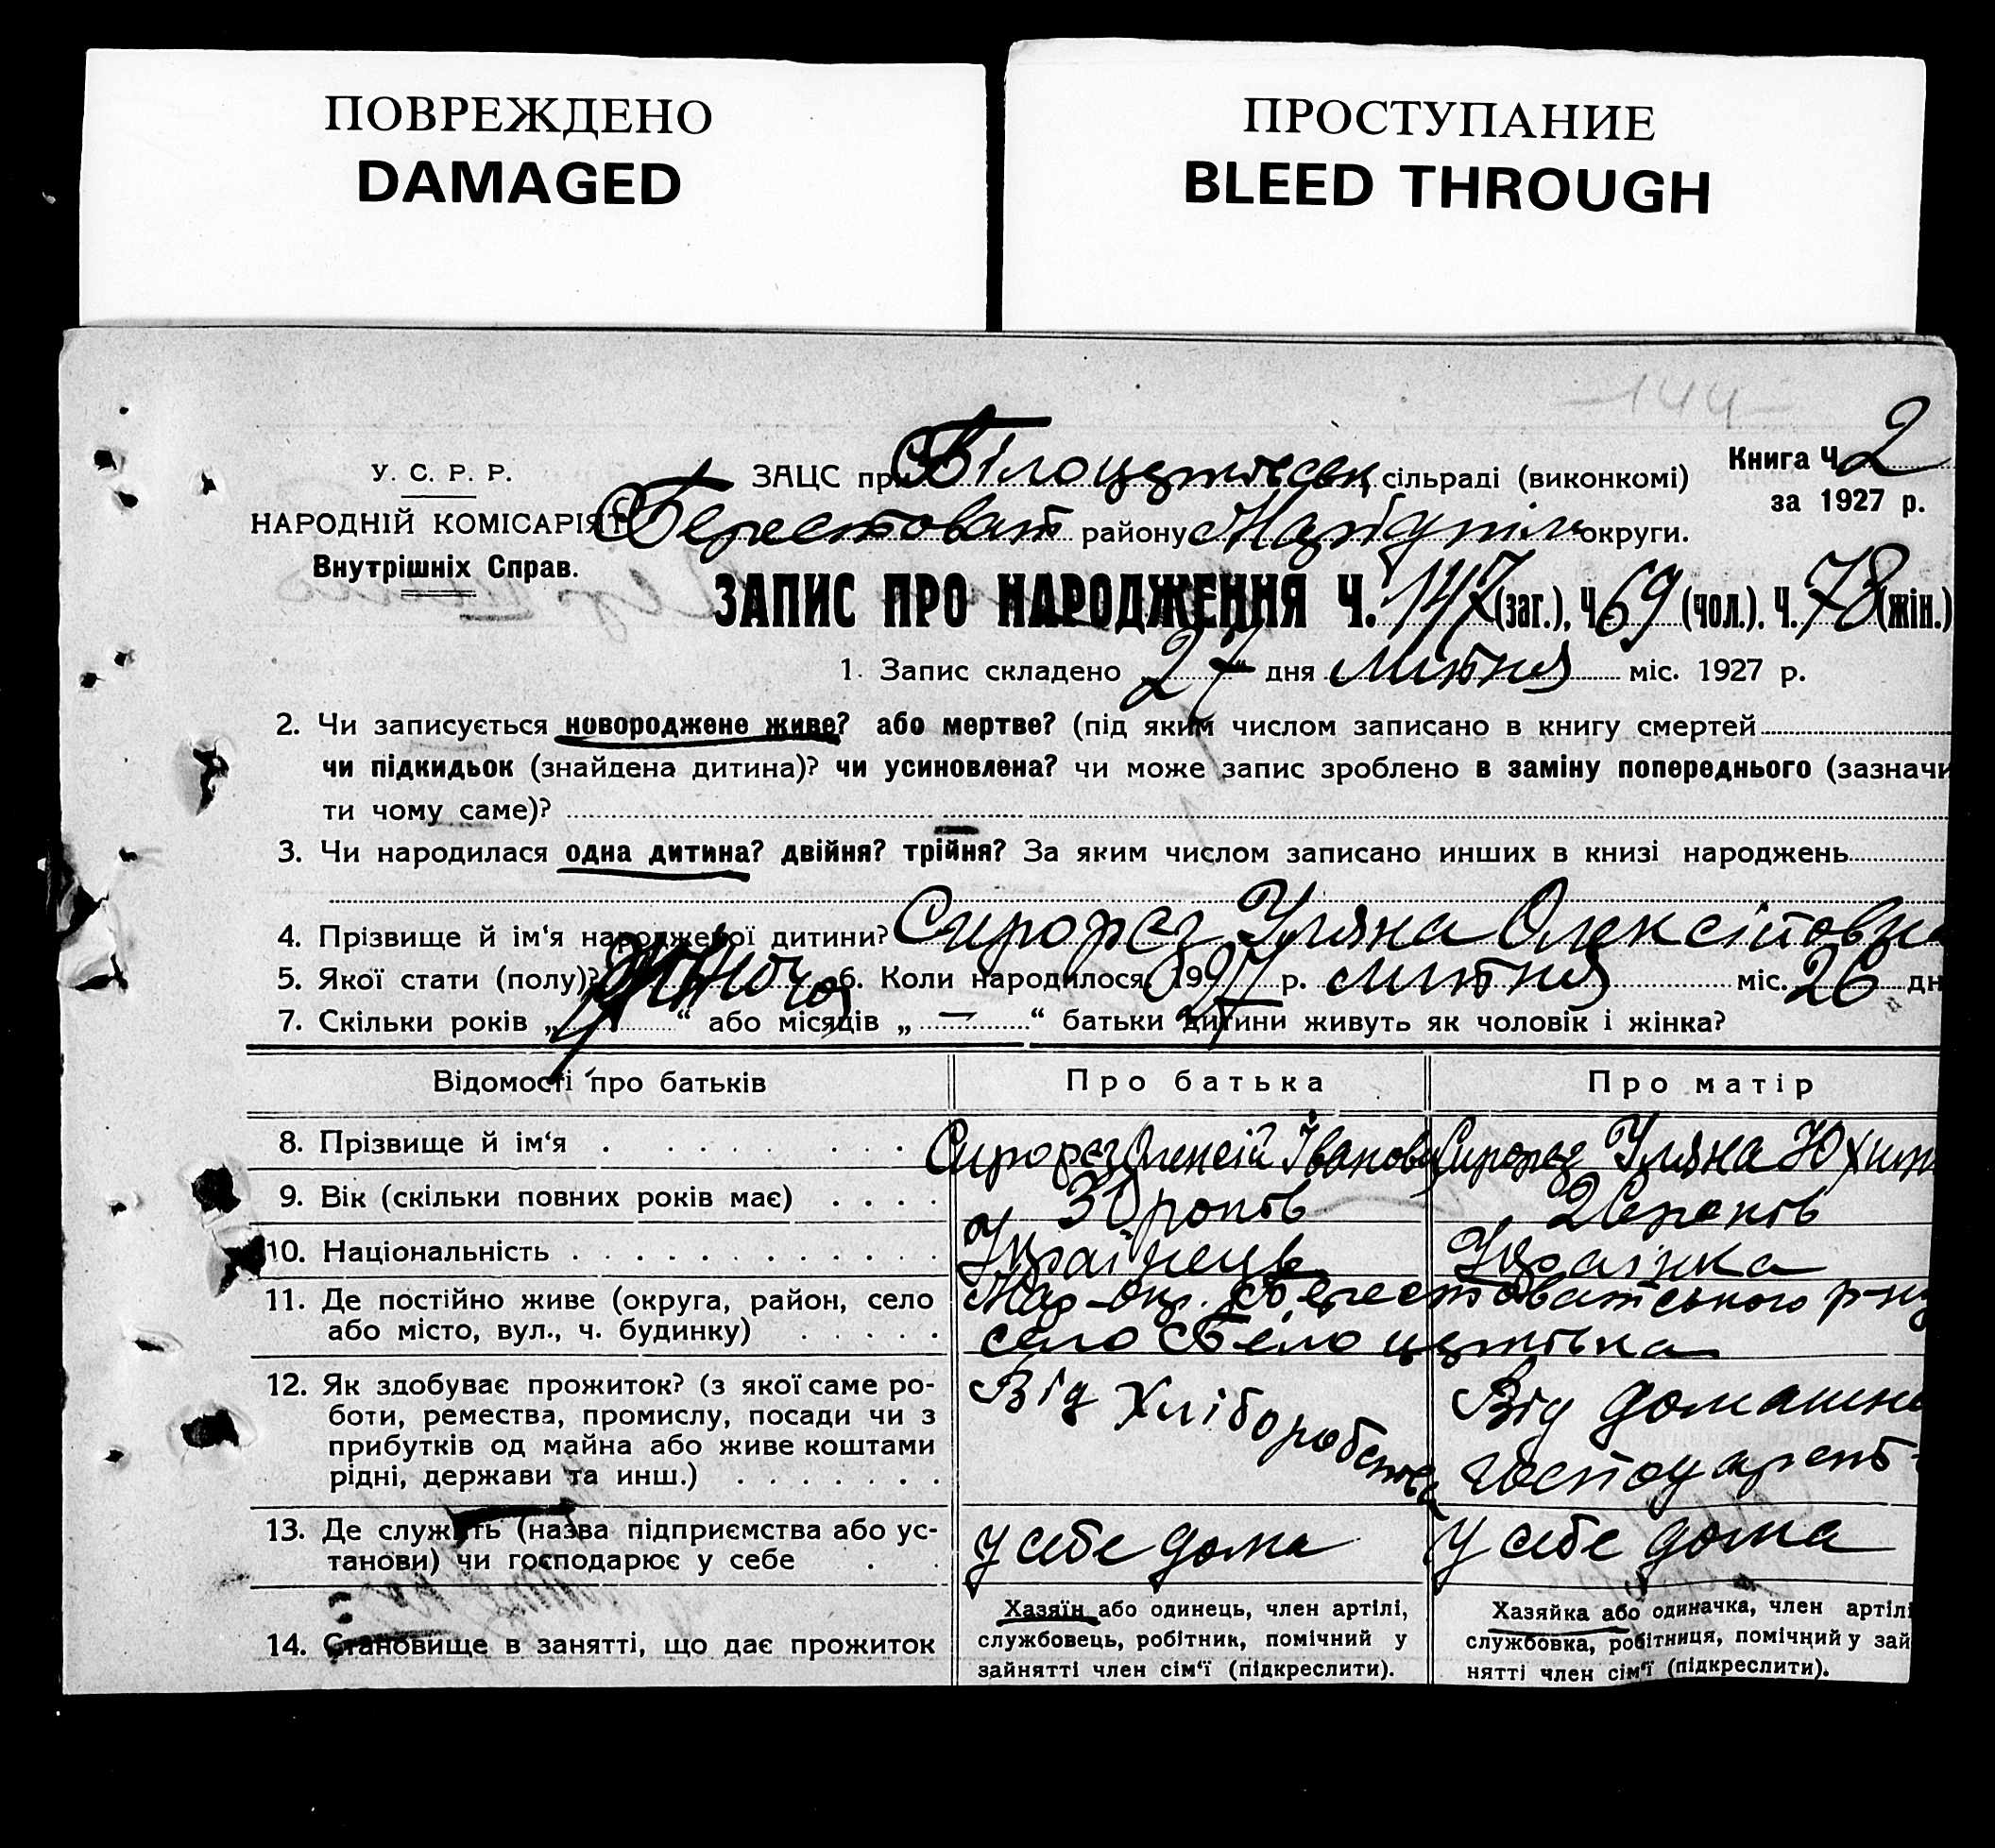 ПОВРЕЖДЕНО
DAMAGED
ПРОСТУПАНИЕ
BLEED THROUGH
-144-
У. С. Р. Р.
НАРОДНІЙ КОМІСАРІЯТ
Внутрішніх Справ.
ЗАЦС при сільраді (виконкомі)
Берестоват району округи.
Книга Ч. 2
за 1927 р.
ЗАПИС ПРО НАРОДЖЕННЯ Ч. 147 (заг.), Ч. 69 (чол.). Ч. 78 (жін.)
1. Запис складено 27 дня липня міс. 1927 р.
2. Чи записується новороджене живе? або мертве? (під яким числом записано в книгу смертей
чи підкидьок (знайдена дитина)? чи усиновлена? чи може запис зроблено в заміну попереднього (зазначи
ти чому саме)?
3. Чи народилася одна дитина? двійня? трійня? За яким числом записано инших в книзі народжень
4. Прізвище й ім‘я народженої дитини? Уляна
5. Якої стати (полу)? жіночої 6. Коли народилося 1927 р. липня міс. 26 дн
7. Скільки років „ “ або місяців „ — “ батьки дитини живуть як чоловік і жінка?
Відомості про батьків
Про батька
Про матір
8. Прізвище й ім‘я Олексій Іванов Уляна Юхим
9. Вік (скільки повних років має) 30 років 26 років
10. Національність Українець Українка
11. Де постійно живе (округа, район, село Мар-окр. Берестоватського р-ну
або місто, вул., ч. будинку) село
12. Як здобуває прожиток? (з якої саме ро-
боти, ремества, промислу, посади чи з
прибутків од майна або живе коштами
рідні, держави та инш.)
Від Хліборобства
Від домашнь
господарств
13. Де служить (назва підприємства або ус-
танови) чи господарює у себе
у себе дома
у себе дома
14. Становище в занятті, що дає прожиток
Хазяїн або одинець, член артілі,
службовець, робітник, помічний у
зайнятті член сім‘ї (підкреслити).
Хазяйка або одиначка, член артілі
службовка, робітниця, помічний у зай
нятті член сім‘ї (підкреслити).